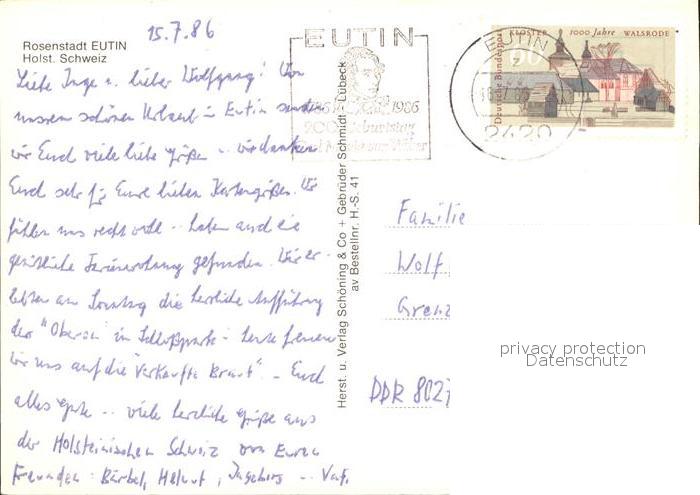 15.7.86
Rosenstadt EUTIN
Holst. Schweiz
Liebe Inge u. lieber Wolfgang! Von
unserem schönen Urlaub in Eutin senden
wir Euch viele liebe Grüße u. wir danken
Euch sehr für Eure lieben Kartengrüße. Wir
fühlen uns recht wohl u. haben auch eine
gemütliche Ferienwohnung gefunden. Wir er-
lebten am Sonntag die herrliche Aufführung
der "Oberon" im Schloßpark - heute freuen
wir uns auf die "Verkaufte Braut". - Euch
alles Gute u. viele herzliche Grüße aus
der Holsteinischen Schweiz von Euren
Freunden Bärbel, Helmut, Ingeborg u.
Herst. u. Verlag Schöning & Co + Gebrüder Schmidt - Lübeck
av Bestellnr. H.-S. 41
EUTIN
1986
200. Geburtstag
Carl Maria von Weber
EUTIN
2420
KLOSTER 1000 Jahre WALSRODE
Deutsche Bundespost
60
Familie
Wolf
Grenz
DDR 8027
privacy protection
Datenschutz